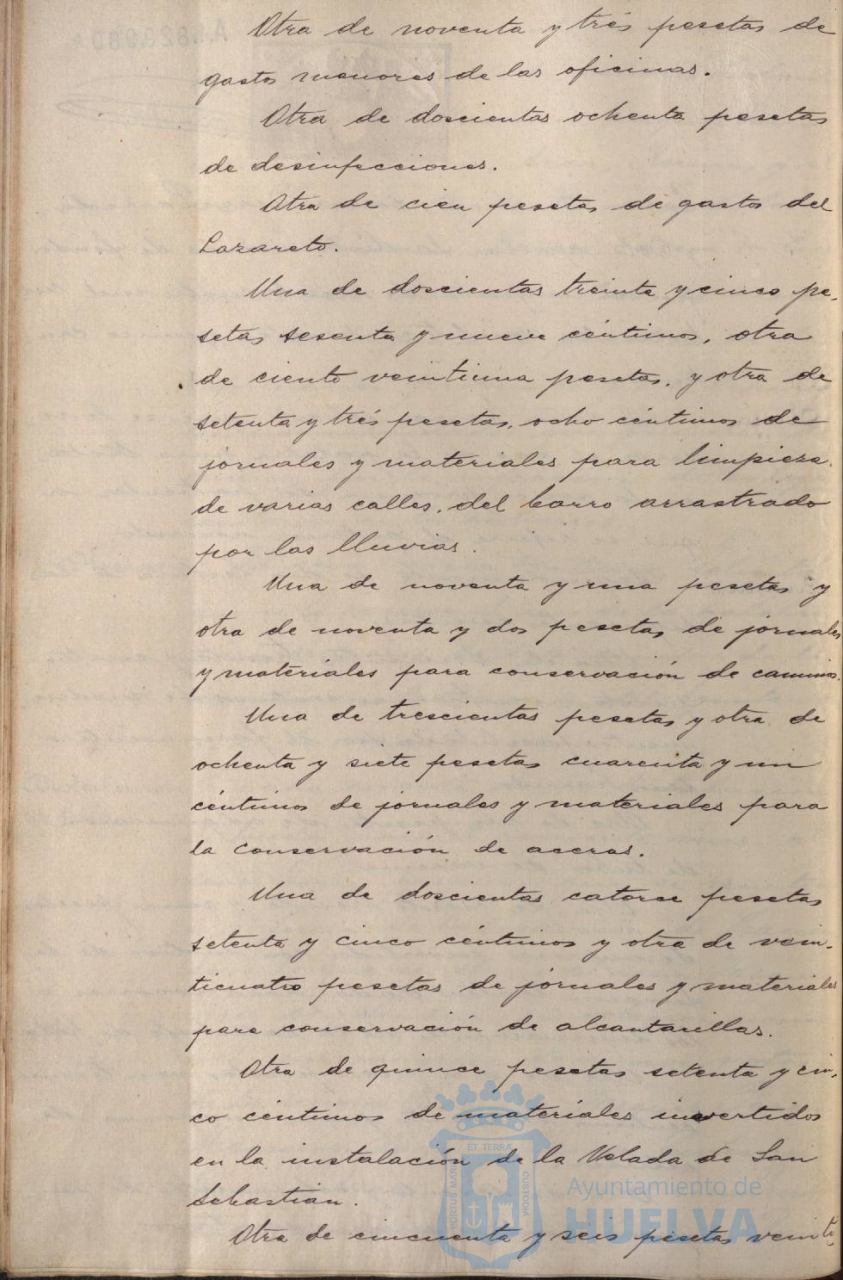 Otra de noventa y trés pesetas de
gastos menores de las oficinas.
Otra de doscientas ochenta pesetas
de desinfecciones.
Otra de cien pesetas de gastos del
Lazareto.
Una de doscientas treinta y cinco pe-
setas sesenta y nueve céntimos, otra
de ciento veintiuna pesetas, y otra de
setenta y trés pesetas, ocho céntimos de
jornales y materiales para limpieza
de varias calles, del barro arrastrado
por las lluvias.
Una de noventa y una pesetas y
otra de noventa y dos pesetas de jornales
y materiales para conservación de caminos.
Una de trescientas pesetas y otra de
ochenta y siete pesetas cuarenta y un
céntimos de jornales y materiales para
la conservación de aceras.
Una de doscientas catorce pesetas
setenta y cinco céntimos y otra de vein-
ticuatro pesetas de jornales y materiales
para conservación de alcantarillas.
Otra de quince pesetas setenta y cin-
co céntimos de materiales invertidos
en la instalación de la Velada de San
Sebastián.
Otra de cincuenta y seis pesetas veinti
PORTUS MARIS ET TERRAE CUSTODIA
Ayuntamiento de
HUELVA